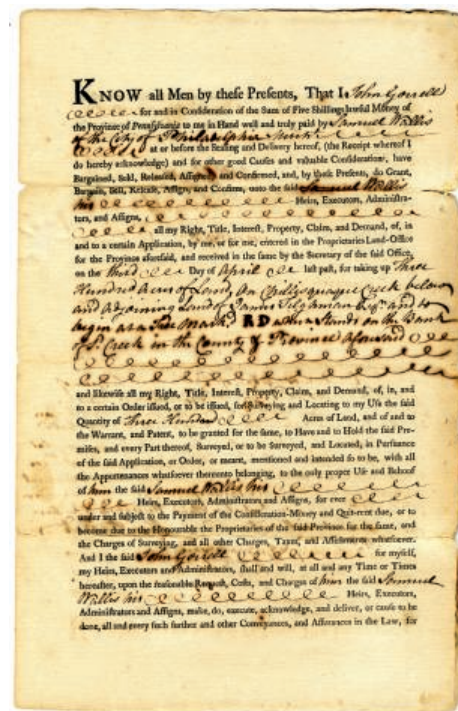 KNOW all Men by these Presents, That I John Gorrell
for and in Consideration of the Sum of Five Shillings lawful Money of
the Province of Pennsylvania to me in Hand well and truly paid by Samuel Wallis
of the City of Philadelphia
at or before the Sealing and Delivery hereof, (the Receipt whereof I
do hereby acknowledge) and for other good Causes and valuable Considerations, have
Bargained, Sold, Released, Assigned and Confirmed, and, by these Presents, do Grant,
Bargain, Sell, Release, Assign, and Confirm, unto the said Samuel Wallis
his Heirs, Executors, Administra-
tors, and Assigns,
all my Right, Title, Interest, Property, Claim, and Demand, of, in
and to a certain Application, by me, or for me, entered in the Proprietaries Land-Office
for the Province aforesaid, and received in the same by the Secretary of the said Office,
on the third Day of April last past, for taking up Three
Hundred Acres of Land, on Chillisquaque Creek below
and adjoining Land of James Tilghman Esqr. and to
begin at a Tree Mark'd R D which Stands on the Bank
of Sd. Creek in the County & Province aforesaid
and likewise all my Right, Title, Interest, Property, Claim, and Demand, of, in, and
to a certain Order issued, or to be issued, for Surveying and Locating to my Use the said
Quantity of Three Hundred Acres of Land, and of and to
the Warrant, and Patent, to be granted for the same, to Have and to Hold the said Pre-
mises, and every Part thereof, Surveyed, or to be Surveyed, and Located, in Pursuance
of the said Application, or Order, or meant, mentioned and intended so to be, with all
the Appurtenances whatsoever thereunto belonging, to the only proper Use and Behoof
of him the said Samuel Wallis his
Heirs, Executors, Administrators and Assigns, for ever
under and subject to the Payment of the Consideration-Money and Quit-rent due, or to
become due to the Honourable the Proprietaries of the said Province for the same, and
the Charges of Surveying, and all other Charges, Taxes, and Assessments whatsoever.
And I the said John Gorrell for myself,
my Heirs, Executors and Administrators, shall and will, at all and any Time or Times
hereafter, upon the reasonable Request, Costs, and Charges of him the said Samuel
Wallis his Heirs, Executors,
Administrators and Assigns, make, do, execute, acknowledge, and deliver, or cause to be
done, all and every such further and other Conveyances, and Assurances in the Law, for